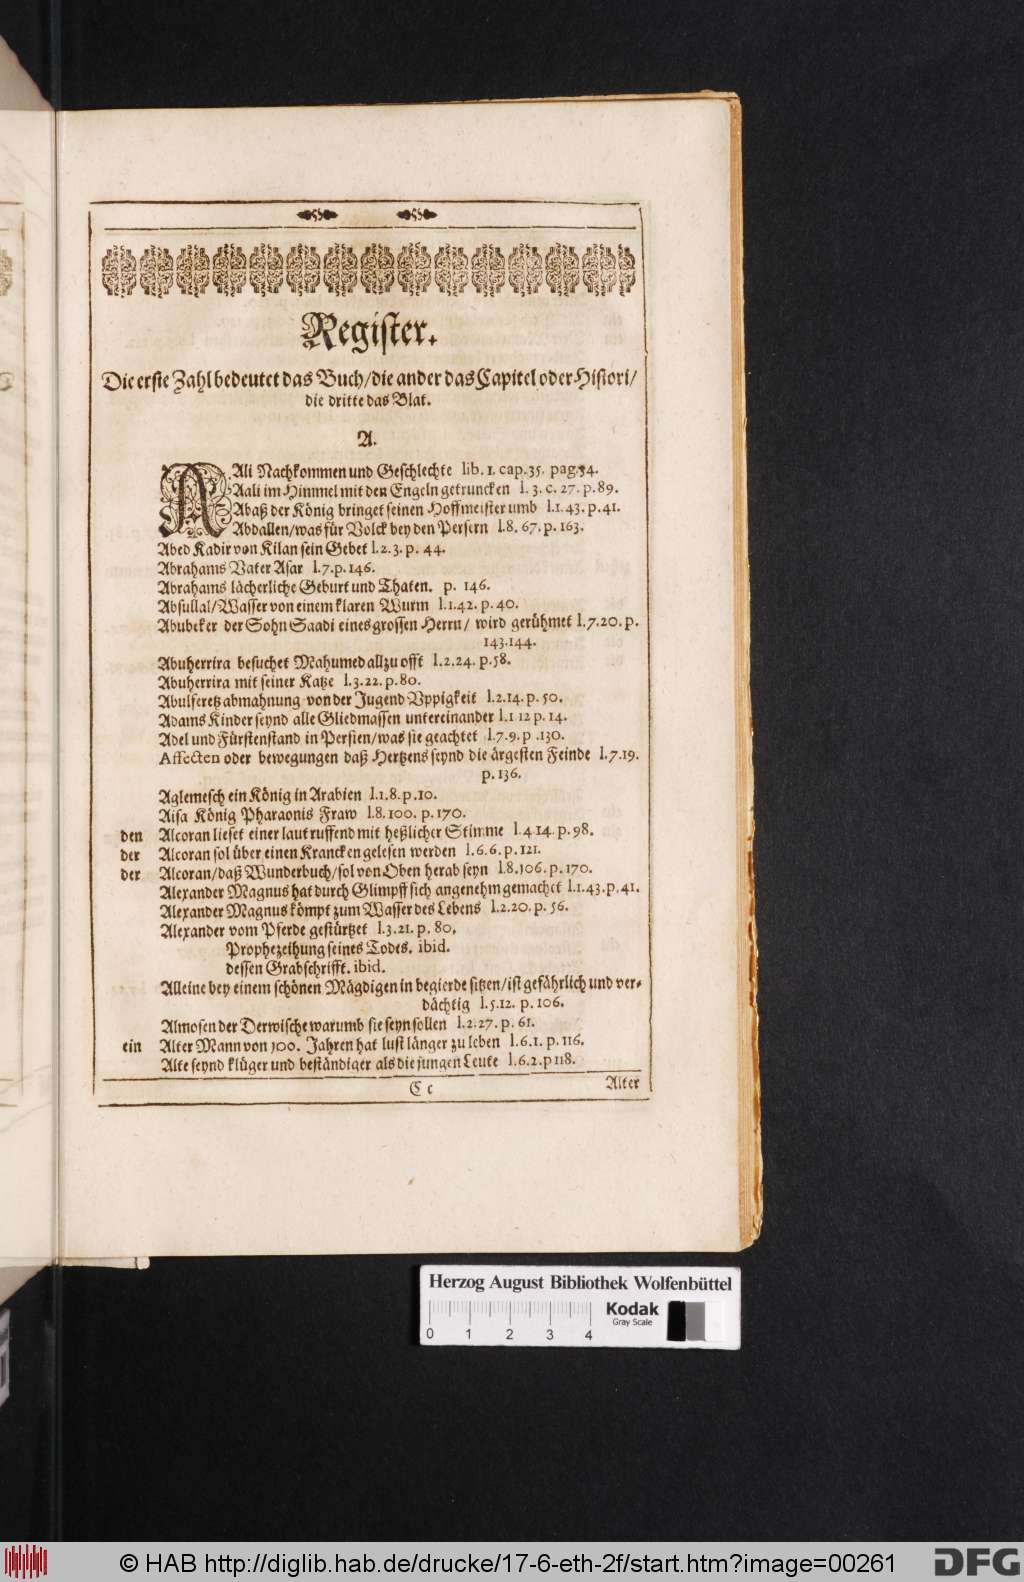 Register.
Die erste Zahl bedeutet das Buch/die ander das Capitel oder Histori/
die dritte das Blat.
A.
AAli Nachkommen und Geschlechte lib. 1. cap. 35. pag. 34.
Aali im Himmel mit den Engeln getruncken l. 3. c. 27. p. 89.
Abaß der König bringet seinen Hoffmeister umb l. 1. 43. p. 41.
Abdallen/was für Volck bey den Persern l. 8. 67. p. 163.
Abed Kadir von Kilan sein Gebet l. 2. 3. p. 44.
Abrahams Vater Asar l. 7. p. 146.
Abrahams lächerliche Geburt und Thaten. p. 146.
Absullal/Wasser von einem klaren Wurm l. 1. 42. p. 40.
Abubeker der Sohn Saadi eines grossen Herrn/ wird gerühmet l. 7. 20. p.
143. 144.
Abuherrira besuchet Mahumed allzu offt l. 2. 24. p. 58.
Abuherrira mit seiner Katze l. 3. 22. p. 80.
Abulferetz abmahnung von der Jugend Vppigkeit l. 2. 14. p. 50.
Adams Kinder seynd alle Gliedmassen untereinander l. 1 12 p. 14.
Adel und Fürstenstand in Persien/was sie geachtet l. 7. 9. p. 130.
Affecten oder bewegungen daß Hertzens seynd die ärgesten Feinde l. 7. 19.
p. 136.
Aglemesch ein König in Arabien l. 1. 8. p. 10.
Aisa König Pharaonis Fraw l. 8. 100. p. 170.
den Alcoran lieset einer laut ruffend mit heßlicher Stimme l. 4 14. p. 98.
der Alcoran sol über einen Krancken gelesen werden l. 6. 6. p. 121.
der Alcoran/daß Wunderbuch/sol von Oben herab seyn l. 8. 106. p. 170.
Alexander Magnus hat durch Glimpff sich angenehm gemachet l. 1. 43. p. 41.
Alexander Magnus kömpt zum Wasser des Lebens l. 2. 20. p. 56.
Alexander vom Pferde gestürtzet l. 3. 21. p. 80.
Prophezeihung seines Todes. ibid.
dessen Grabschrifft. ibid.
Alleine bey einem schönen Mägdigen in begierde sitzen/ist gefährlich und ver-
dächtig l. 5. 12. p. 106.
Almosen der Derwische warumb sie seyn sollen l. 2. 27. p. 61.
ein Alter Mann von 100. Jahren hat lust länger zu leben l. 6. 1. p. 116.
Alte seynd klüger und beständiger als die jungen Leute l. 6. 2. p 118.
C c
Alter
Herzog August Bibliothek Wolfenbüttel
Kodak
Gray Scale
0 1 2 3 4
© HAB http://diglib.hab.de/drucke/17-6-eth-2f/start.htm?image=00261
DFG